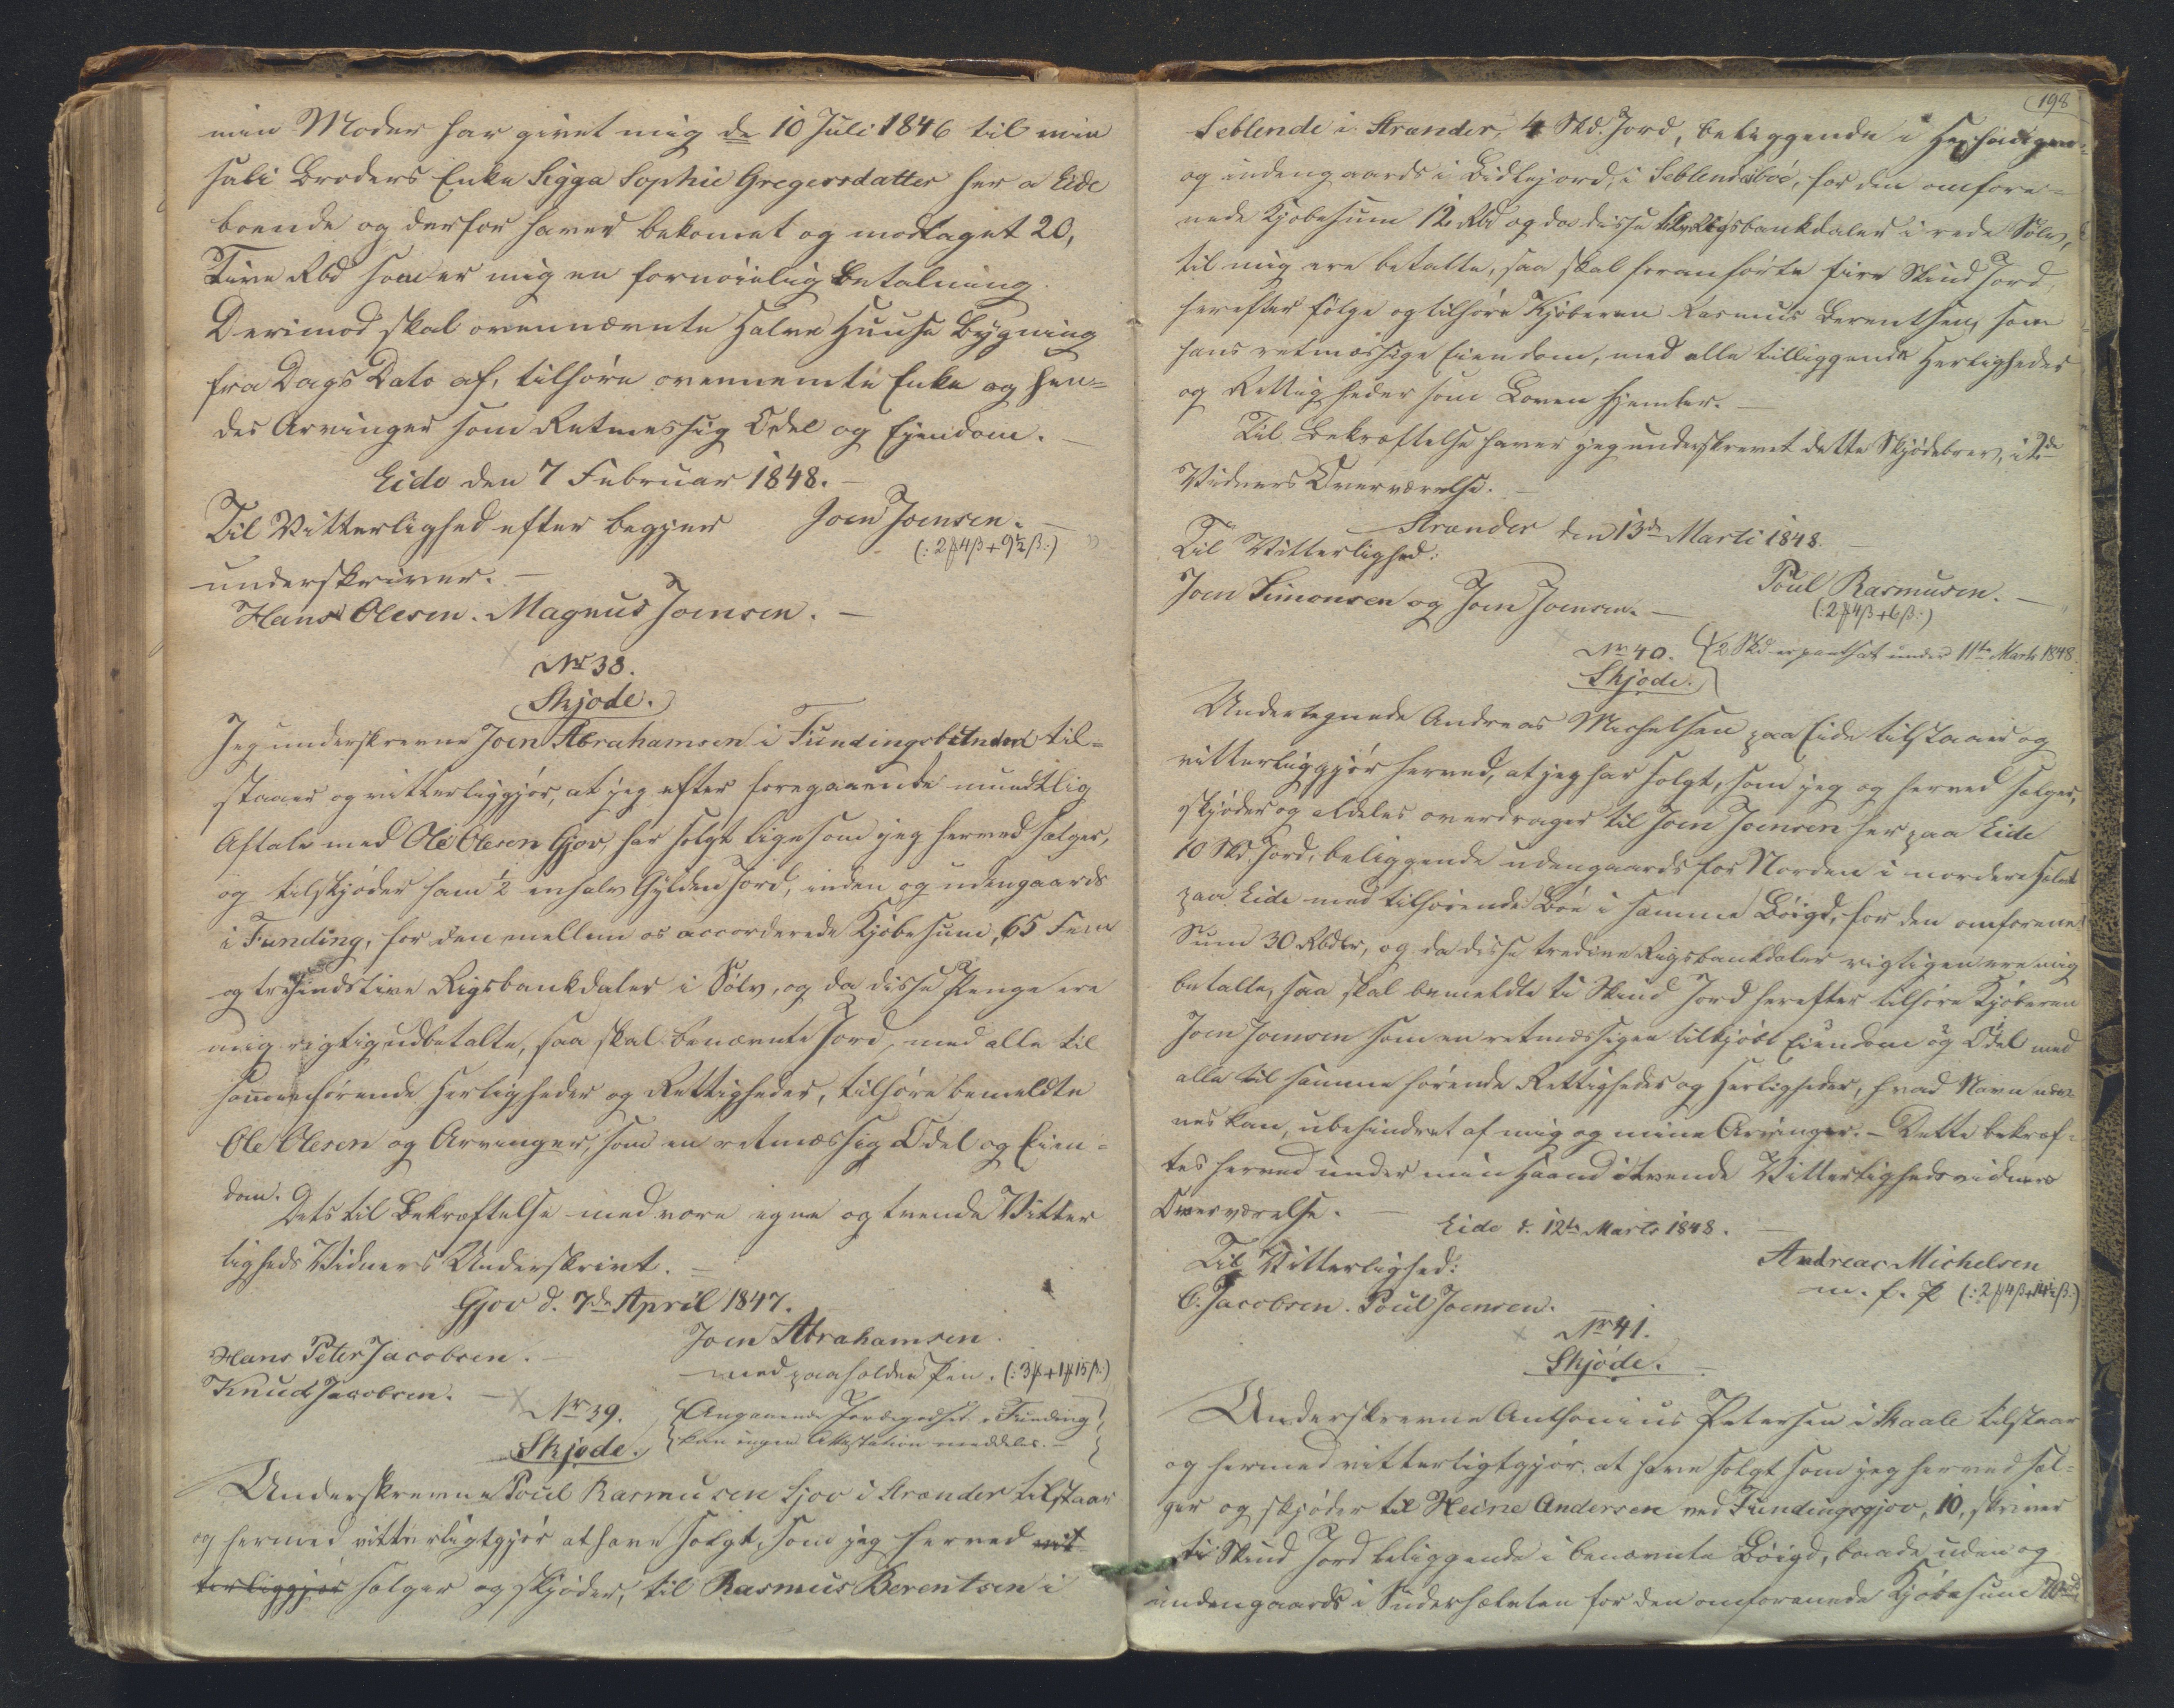 min Moder har givet mig de 10 Juli 1846 til min
sali Broders Enke Sigga Sophie Gregersdatter her a Eide
boende og derfor haver bekomet og modtaget 20,
Tive Rbd som er mig en fornøielig Betalning.
Derimod skal ovennævnte Halve Huuse Bygning
fra Dags Dato af, tilhøre ovennemte Enke og hen-
des Arvinger som Retmessig Odel og Eiendom. —
Eide den 7 Februar 1848. —
Til Vitterlighed efter begjer Joen Joensen. —
underskriver. — (: 2# 4β + 9½β :)
Hans Olesen. Magnus Joensen. —
Nr 38.
Skjøde.
Jeg underskrevne Joen Abrahamsen i Fundingsbotnden til-
staaer og vitterliggjør, at jeg efter foregaaende mundtlig
Aftale med Ole Olesen Gjov, har solgt ligesom jeg herved sælger,
og tilskjøder ham ½ en halv Gylden Jord, inden og udengaards
i Funding, for den mellem os accorderede Kjøbesum, 65 Fem
og tresindstive Rigsbankdaler i Sølv, og da disse Penge ere
mig rigtig udbetalte, saa skal benævnte Jord, med alle til
sammehørende Herligheder og Rettigheder, tilhøre bemeldte
Ole Olesen og Arvinger, som en retmæssig Odel og Eien-
dom.
Dets til Bekræftelse med vore egne og tvende Vitter
ligheds Vidners Underskrivt. —
Gjov d. 7de April 1847.
Joen Abrahamsen.
Hans Peter Jacobsen. — med paaholden Pen. (: 3# + 1# 15β :)
Knud Jacobsen. —
Nr 39. Angaaende Jordegodset i Funding
Skjøde. kan ingen Attestation meddeles. —
Underskrevne Poul Rasmusen Ljov i Strænder tilstaar
og hermed vitterligtgjør at have solgt, som jeg herved vit
terliggjør sælger og skjøder, til Rasmus Berentsen i
198
Seblende i Strænder, 4 Skd. Jord, beliggende i
og indengaards i Bidlejord, i Seblendesboe, for den omfore-
nede Kjøbesum 12 Rbd og da disse tolv Rigsbankdaler i rede Sølv,
til mig ere betalte, saa skal foranførte fire Skind Jord,
herefter følge og tilhøre Kjøberen Rasmus Berentsen, som
hans retmæssige Eiendom, med alle tilliggende Herligheder
og Rettigheder som Loven hjemler. —
Til Bekræftelse haver jeg underskrevet dette Skjødebrev, i 2de
Vidners Overværelse. —
Strænder den 13de Marti 1848. —
Til Vitterlighed:
Joen Simonsen og Joen Joensen. — Poul Rasmusen. —
(: 2# 4β + 6β :)
Nr 40. 2 Skd er pantsat under 11te Marts 1848.
Skjøde.
Undertegnede Andreas Michelsen paa Eide tilstaaer og
vitterliggjør herved, at jeg har solgt, som jeg og herved sælger,
skjøder og aldeles overdrager til Joen Joensen her paa Eide
10 Skd. Jord, beliggende udengaards for Norden i nordere Halv
paa Eide med tilhørende Bøe i samme Bøigd, for den omforenede
Sum 30 Rbdlr, og da disse tredive Rigsbankdaler rigtigen ere mig
betalte, saa skal bemeldte ti Skind Jord herefter tilhøre Kjøberen
Joen Joensen som en retmæssigen tilkjøbt Eiendom og Odel med
alle til samme hørende Rettigheder og Herligheder, hvad Navn næv-
nes kan, ubehindret af mig og mine Arvinger. — Dette bekræf-
tes herved under min Haand i tvende Vitterlighedsvidners
Overværelse. —
Eide d. 12te Marts 1848. —
Til Vitterlighed: Andreas Michelsen
C. Jacobsen. Poul Joensen. m. f. P (: 2# 4β + 14½β :)
Nr 41.
Skjøde.
Underskrevne Anthonius Petersen i Skaale tilstaar
og hermed vitterligtgjør, at have solgt som jeg herved sæl-
ger og skjøder til Heine Andersen ved Fundingsgjov, 10, skriver
ti Skind Jord beliggende i benævnte Bøigd, baade uden og
indengaards i Suderhælvten for den omforenede Kjøbesum 70